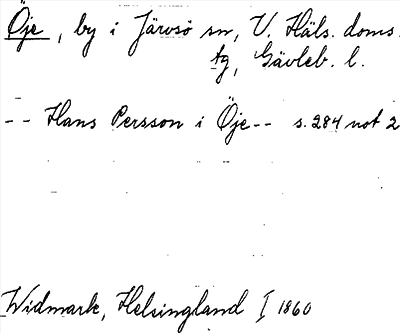 Öje, by i Järvsö sn, V. Häls. doms.
tg, Gävleb. l.
-- Hans Persson i Öje -- s. 284 not 2
Widmark, Helsingland I 1860